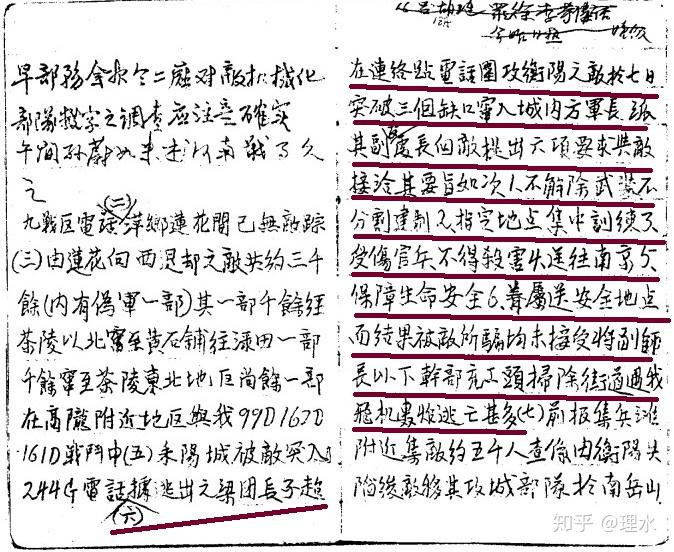 早部務會報令二廳对敵机械化
部隊數字之調查应注意確实
午间孫蔚如來述河南戰事久
之
(二)
九戰区電話萍鄉蓮花間已無敵踪
(三)由蓮花向西退却之敵共約三千
餘(內有偽軍一部)其一部千餘經
茶陵以北竄至黄石鋪往淥田一部
千餘竄至茶陵東北地区尚餘一部
在高隴附近地区與我99D162D
161D戰鬥中(五)耒陽城被敵突入
244G電話據逃出之梁団長子超
(六)
在連絡點電話圍攻衡陽之敵於七日
突破三個缺口竄入城內方軍長派
其副處長向敵提出六項要求與敵
接洽其要旨如次1.不解除武裝不
分割建制2.指定地点集中訓練3.
受傷官兵不得殺害4.送往南京5.
保障生命安全6.眷屬送安全地点
而结果被敵所騙均未接受將副師
長以下幹部充工頭掃除街道遇我
飛机轟炸逃亡甚多(七)前报集兵灘
附近集敵約五千人查係由衡陽失
陷後敵移其攻城部隊於南岳山
知乎 @理水